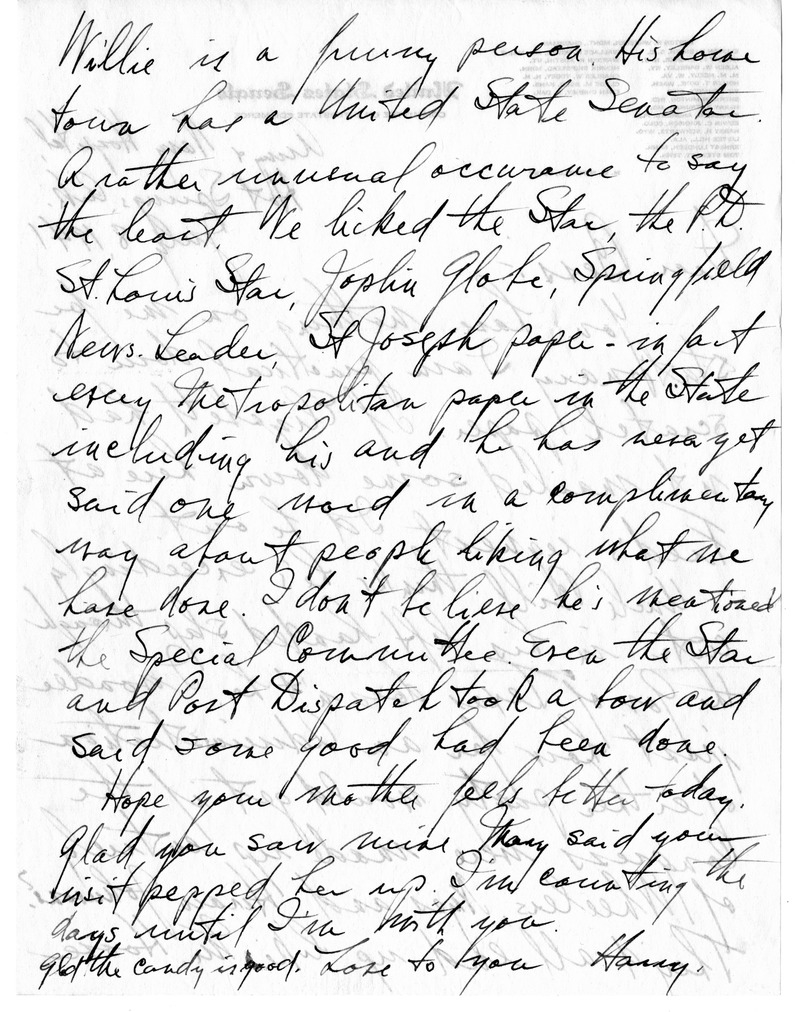 Willie is a funny person. His home
town has a United State Senator.
A rather unusual occurance to say
the least. We licked the Star, the P.D.
St. Louis Star, Joplin Globe, Springfield
News-Leader, St Joseph paper - in fact
every Metropolitan paper in the State
including his and he has never yet
said one word in a complimentary
way about people liking what we
have done. I don't believe he's mentioned
the Special Committee. Even the Star
and Post Dispatch took a bow and
said some good had been done.
Hope your mother feels better today.
Glad you saw mine Mary said your
visit pepped her up. I'm counting the
days until I'm with you.
Glad the candy is good. Love to you Harry.